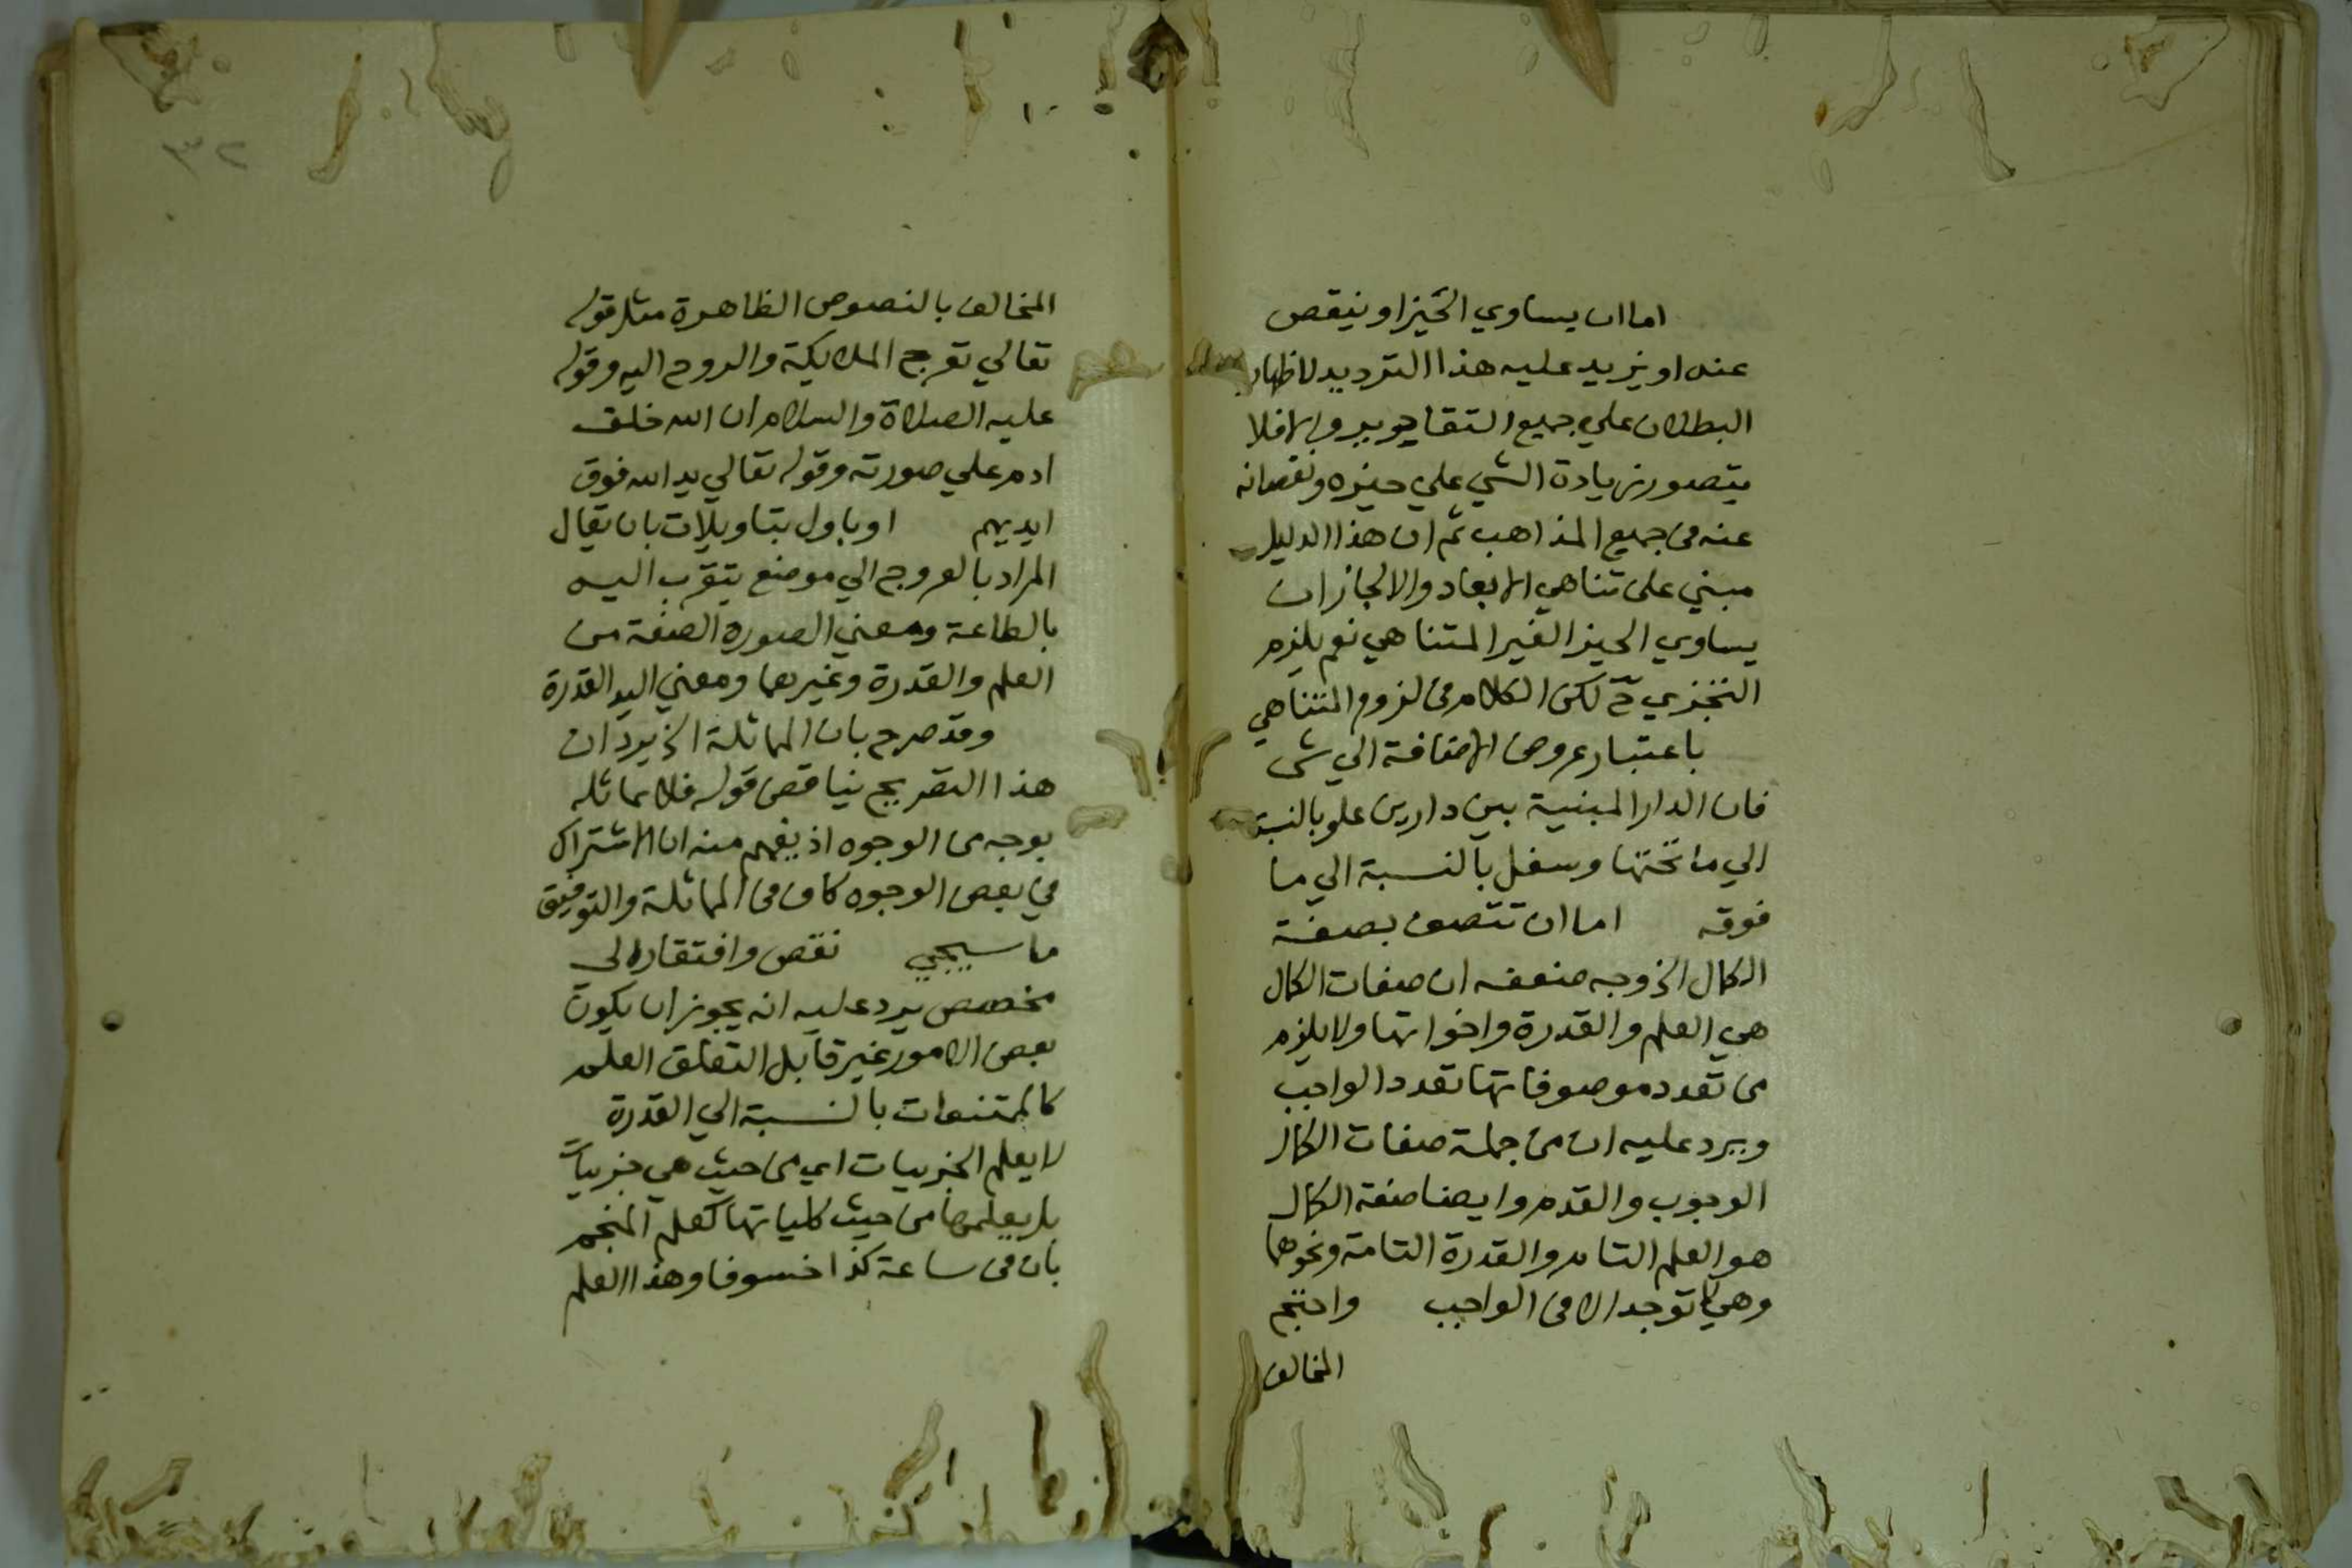 اما ان يساوي الحيز او ينقص
عنه او يزيد عليه هذا الترديد لاظهار
البطلان علي جميع التقادير والا فلا
يتصور زيادة الشي علي حيزه ونقصانه
عنه في جميع المذاهب ثم ان هذا الدليل
مبني على تناهي الابعاد والا لجاز ان
يساوي الحيز الغير المتناهي نعم يلزم
التجزي ح لكن الكلام في لزوم المتناهي
باعتبار عروض الاضافة الي شي
فان الدار المبنية بين دارين علو بالنسبة
الي ما تحتها وسفل بالنسبة الي ما
فوقه اما ان تتصف بصفة
الكمال الخ وجه ضعفه ان صفات الكمال
هي العلم والقدرة واخواتها ولا يلزم
من تعدد موصوفاتها تعدد الواجب
ويرد عليه ان من جملة صفات الكمال
الوجوب والقدم وايضا صفة الكمال
هو العلم التام والقدرة التامة ونحوهما
وهي لا توجد الا في الواجب واحتج
المخالف
٣٢
المخالف بالنصوص الظاهرة مثل قوله
تعالي تعرج الملايكة والروح اليه وقوله
عليه الصلاة والسلام ان الله خلق
ادم علي صورته وقوله تعالي يد الله فوق
ايديهم او ياول بتاويلات بان يقال
المراد بالعروج الي موضع يتقرب اليه
بالطاعة ومعني الصورة الصفة من
العلم والقدرة وغيرهما ومعني اليد القدرة
وقد صرح بان المماثلة الخ يرد ان
هذا التصريح يناقض قوله فلا يماثله
بوجه من الوجوه اذ يفهم منه ان الاشتراك
في بعض الوجوه كاف في المماثلة والتوفيق
ما سيجيي نقص وافتقار الى
مخصص يرد عليه انه يجوز ان يكون
بعض الامور غير قابل التعلق العلم
كالممتنعات بالنسبة الي القدرة
لا يعلم الجزييات اي من حيث هي جزييات
بل يعلمها من حيث كلياتها كعلم المنجم
بان في ساعة كذا خسوفا وهذا العلم